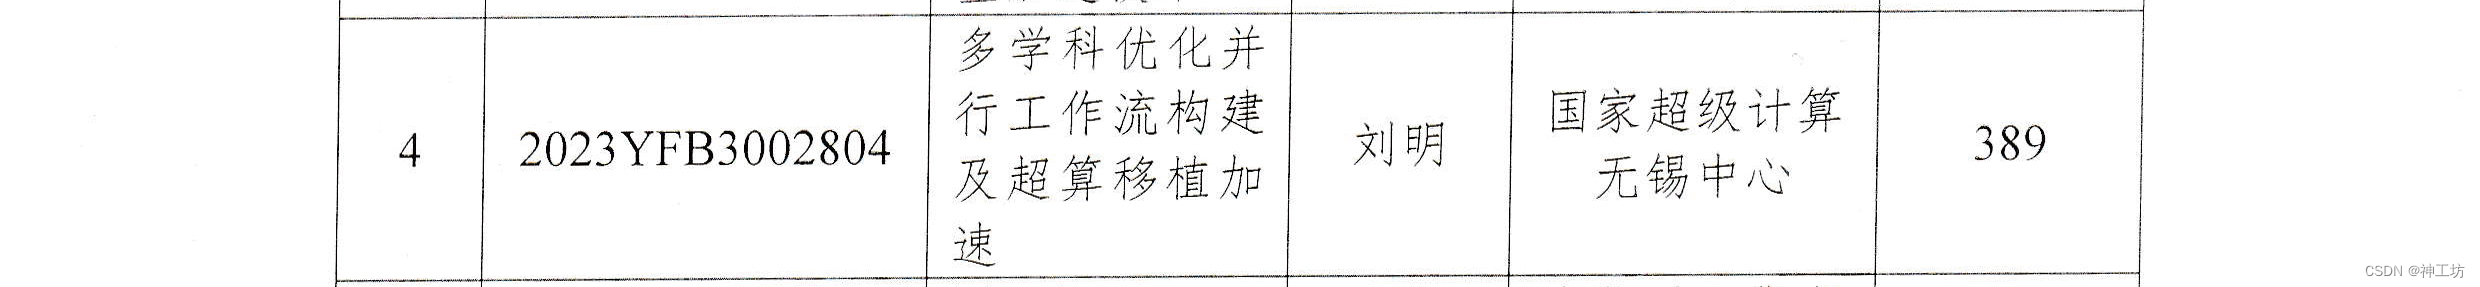 4
2023YFB3002804
多学科优化并
行工作流构建
及超算移植加
速
刘明
国家超级计算
无锡中心
389
CSDN @神工坊